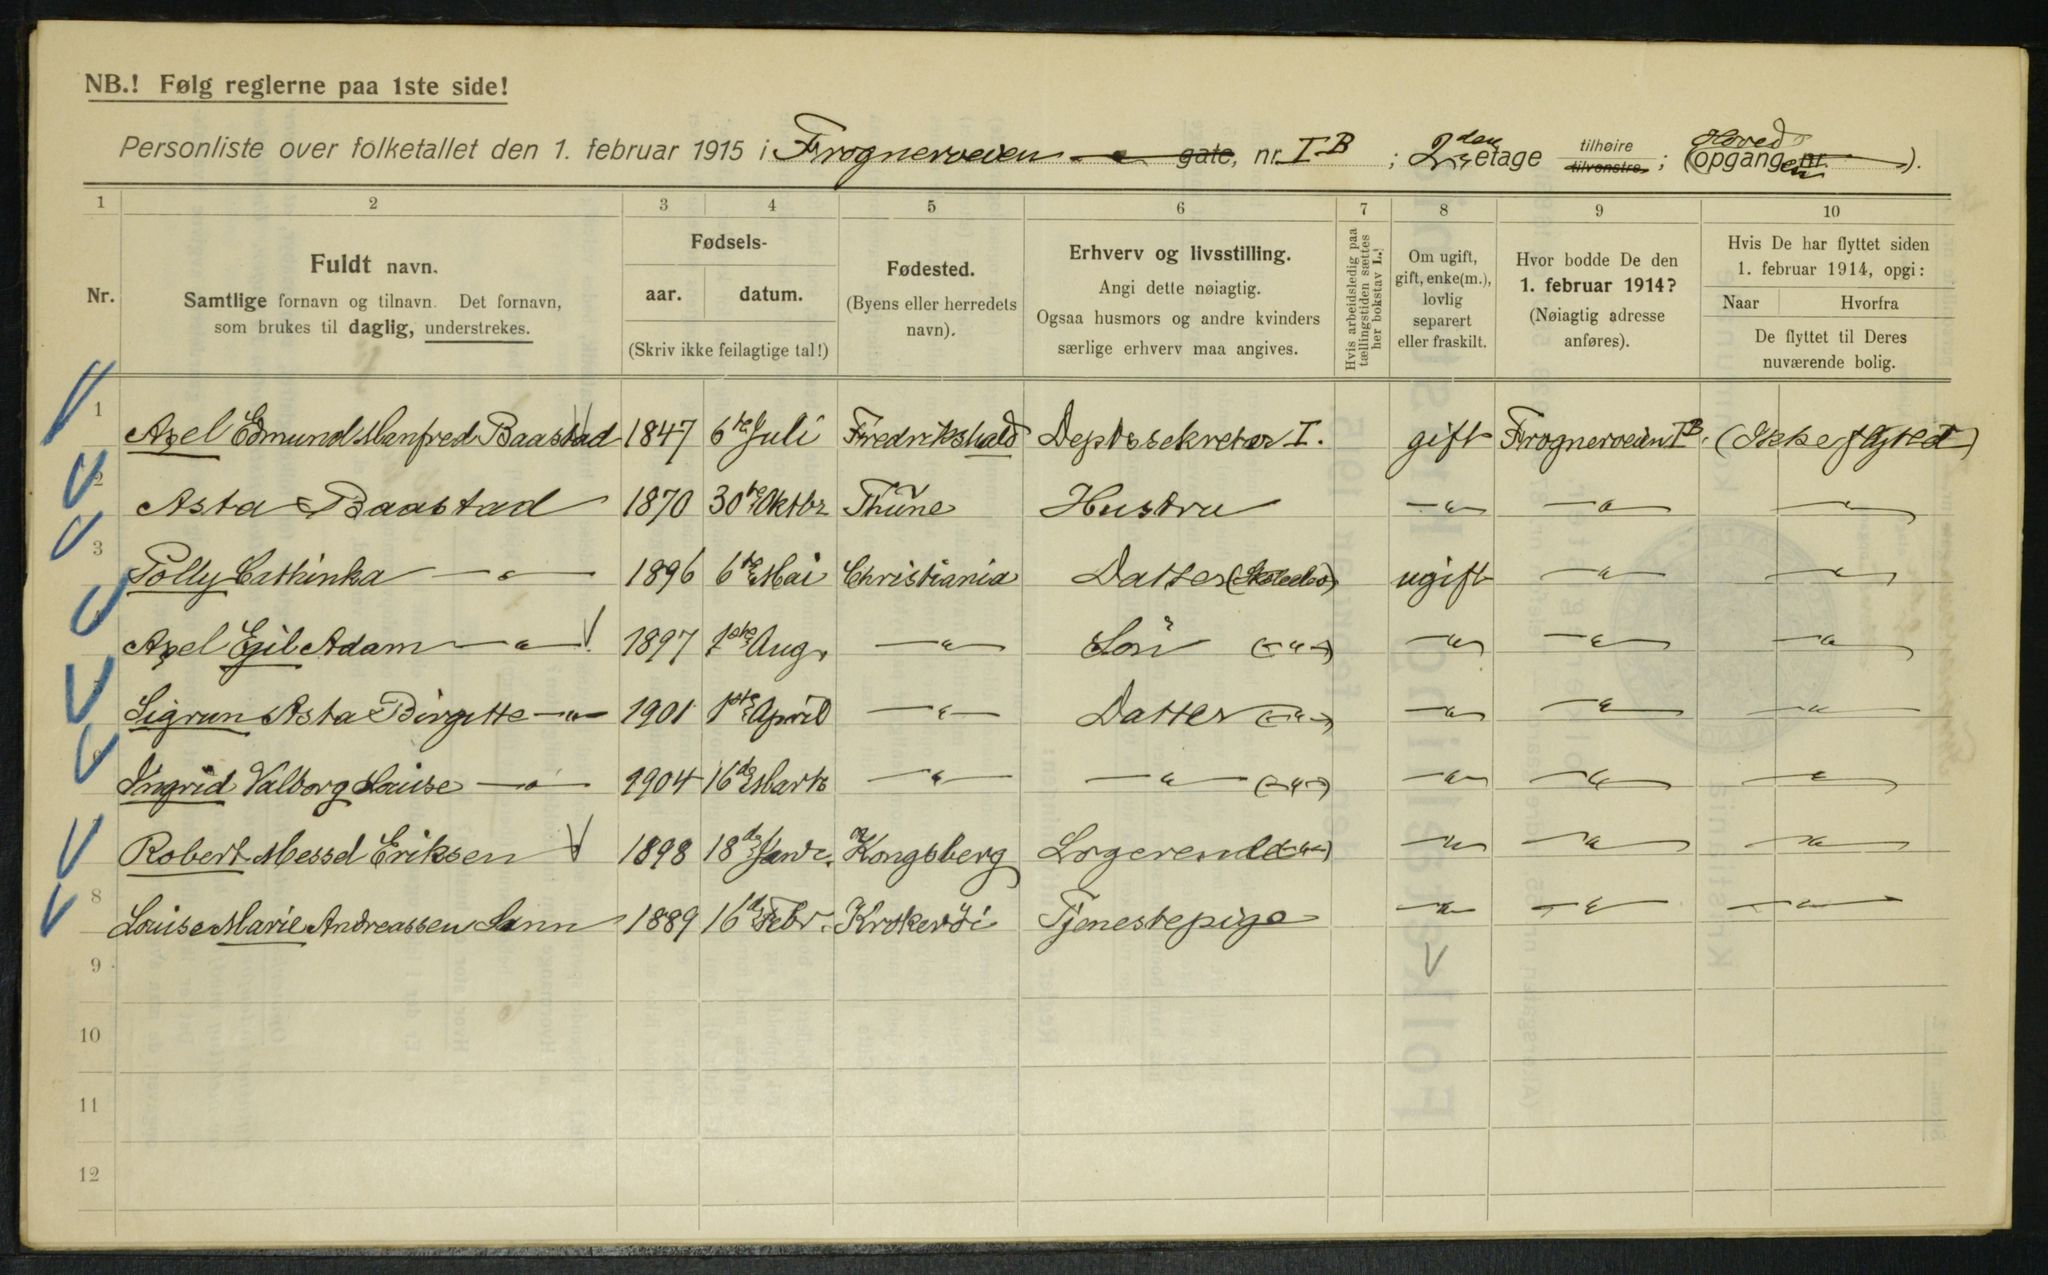 NB.! Følg reglerne paa 1ste side!
Personliste over folketallet den 1. februar 1915 i Frogneroeien gate, nr. I B ; 2den etage tilhøire tilvenstre ; (Hoved opgang nr. en ).
1 2 3 4 5 6 7 8 9 10
Nr.
Fuldt navn.
Samtlige fornavn og tilnavn. Det fornavn,
som brukes til daglig, understrekes.
Fødsels-
aar. datum.
(Skriv ikke feilagtige tal!)
Fødested.
(Byens eller herredets
navn).
Erhverv og livsstilling.
Angi dette nøiagtig.
Ogsaa husmors og andre kvinders
særlige erhverv maa angives.
Hvis arbeidsledig paa
tællingstiden sættes
her bokstav L.!
Om ugift,
gift, enke(m.),
lovlig
separert
eller fraskilt.
Hvor bodde De den
1. februar 1914?
(Nøiagtig adresse
anføres).
Hvis De har flyttet siden
1. februar 1914, opgi:
Naar Hvorfra
De flyttet til Deres
nuværende bolig.
1 Axel Edmund Manfred Baastad 1847 6te Juli Fredrikshald Deptssekretær I. gift Frogneroeien I B. (Ikke flyttet)
2 Asta Baastad 1870 30te Oktbr Thüne Hustru — " — — " — — " —
3 Polly Cathinka — " — 1896 6te Mai Christiania Datter ugift — " — — " —
Axel Egil Adam — " — 1897 1ste Aug. — " — Søn (— " —) — " — — " — — " —
Sigrun Asta Birgitte — " — 1901 1ste April — " — Datter (— " —) — " — — " — — " —
6 Ingrid Valborg Louise — " — 1904 16de Marts — " — — " — (— " —) — " — — " — — " —
Robert Messel Eriksen 1898 18de Janr. Kongsberg Logerende (— " —) — " — — " — — " —
8 Louise Marie Andreassen Sann 1889 16de Febr. Krokerøi Tjenestepige — " — — " — — " —
9
10
11
12